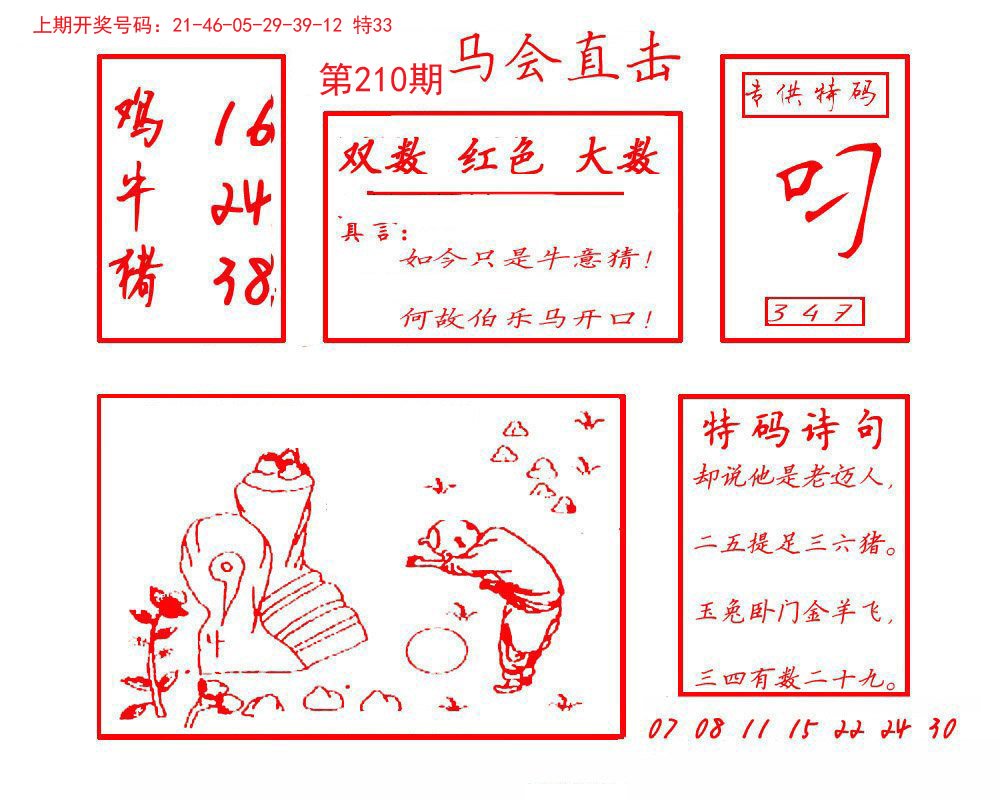 上期开奖号码：21-46-05-29-39-12 特33
第210期 马会直击
鸡 16
牛 24
猪 38
双数 红色 大数
真言：
如今只是牛意猜！
何故伯乐马开口！
专供特码
叼
3 4 7
特码诗句
却说他是老迈人，
二五提足三六猪。
玉兔卧门金羊飞，
三四有数二十九。
07 08 11 15 22 24 30